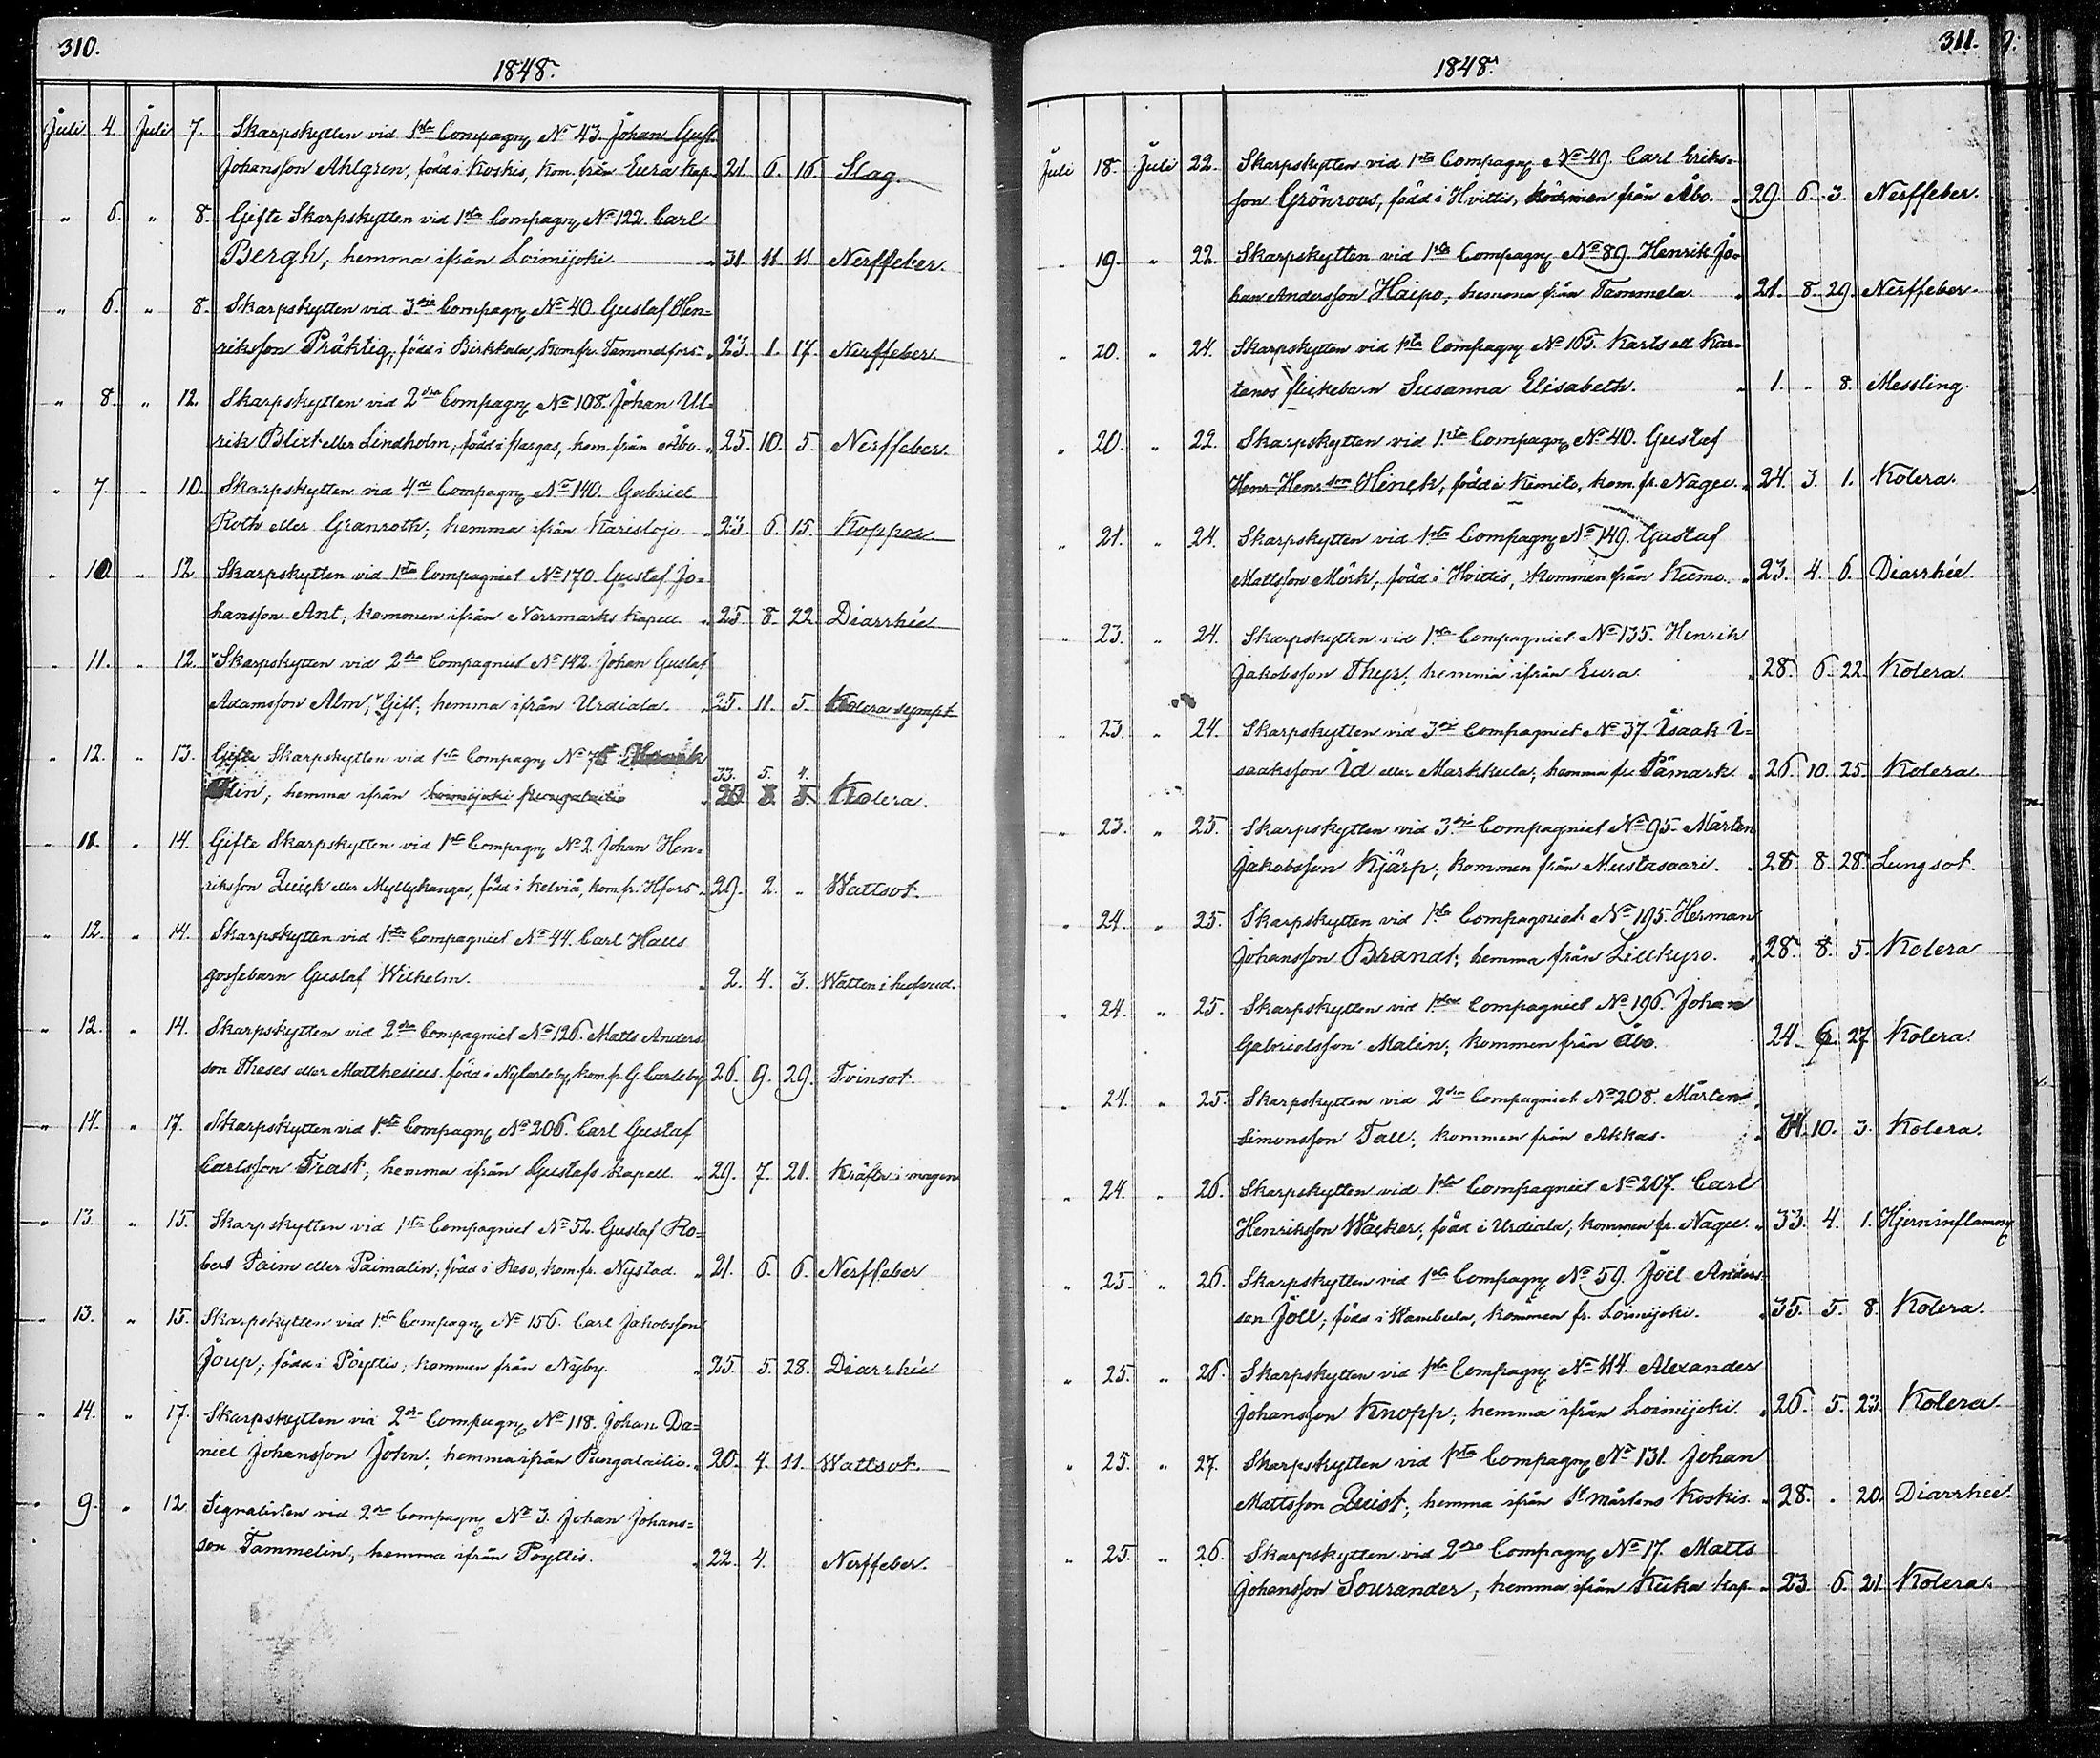 310.
1848.
Juli 4. Juli 7. Skarpskytten vid 1sta Compagn, No 43. Johan Gust.
Johansson Ahlgren, född i Koskis, kom. från Eura kap. 21. 6. 16. Slag.
" 6. " 8. Gifte Skarpskytten vid 1sta Compagn, No 122. Carl
Bergh, hemma ifrån Loimijoki. 31. 11. 11 Nerffeber.
" 6. " 8. Skarpskytten vid 3dje Compagn, No 40 Gustaf Hen=
riksson Präktig, född i Birkkala, kom fr. Tammerfors. 23. 1. 17. Nerffeber
" 8. " 12. Skarpskytten vid 2dra Compagn, No 108. Johan Ul=
rik Blixt eller Lindholm, född i Pargas, kom. från Åbo. 25. 10. 5. Nerffeber.
" 7. " 10. Skarpskytten vid 4de Compagn, No 140. Gabriel
Roth eller Granroth; hemma ifrån Karislojo. 23 6. 15. Koppor
" 10. " 12 Skarpskytten vid 1sta Compagniet No 170. Gustaf Jo=
hansson Ant, kommen ifrån Norrmarks Kapell. 25 8. 22 Diarrhée
" 11. " 12. Skarpskytten vid 2dra Compagniet No 142. Johan Gustaf
Adamsson Alm, Gift; hemma ifrån Urdiala. 25. 11. 5. Kolera sympt
" 12. " 13. Gifte Skarpskytten vid 1sta Compagn, No
hemma ifrån Loimijoki Pungalaitio 33. 5. 4. Kolera.
" 11. " 14. Gifte Skarpskytten vid 1sta Compagn, No 2. Johan Hen=
riksson Quick eller Myllykangas, född i Kelviå, kom. fr. Hfors. 29. 2. " Wattsot.
" 12. " 14. Skarpskytten vid 1sta Compagniet No 44. Carl Haus
gossebarn Gustaf Wilhelm. 2. 4. 3. Watten i hufvud.
" 12. " 14. Skarpskytten vid 2dra Compagniet No 126. Matts Anders
son Theses eller Matthesius. född i NyCarleby, kom. fr. G. Carleby 26. 9. 29. Tvinsot.
" 14. " 17. Skarpskytten vid 1sta Compagn, No 206. Carl Gustaf
Carlsson Trast, hemma ifrån Gustafs kapell. 29. 7. 21. Kräfta i magen
" 13. " 15. Skarpskytten vid 1sta Compagniet No 52. Gustaf Ro=
bert Paim eller Paimalin; född i Reso, kom. fr. Nystad. 21. 6. 6. Nerffeber
" 13. " 15. Skarpskytten vid 1sta Compagn, No 156. Carl Jakobsson
Joup, född i Pöyttis, kommen från Nyby. 25. 5 28. Diarrhée
" 14. " 17. Skarpskytten vid 2dra Compagn, No 118. Johan Da=
niel Johansson John; hemma ifrån Pungalaitio. 20. 4. 11. Wattsot.
" 9. " 12. Signalisten vid 2dra Compagn, No 3. Johan Johans=
son Tammelin, hemma ifrån Pöyttis. 22. 4. Nerffeber.
311.
1848.
Juli 18. Juli 22. Skarpskytten vid 1sta Compagn, No 49. Carl Eriks=
son Grönroos, född i Hvittis, kommen från Åbo. 29. 6. 3. Nerffeber.
" 19. " 22. Skarpskytten vid 1sta Compagn, No 89. Henrik Jo=
han Andersson Haipo, hemma från Tammela. 21. 8. 29. Nerffeber.
" 20. " 24. Skarpskytten vid 1sta Compagn, No 165. Karls ell Kar=
tanos flickebarn Susanna Elisabeth. 1. " 8. Messling.
" 20. " 22. Skarpskytten vid 1sta Compagn, No 40. Gustaf
Henr Henr.son Hinck, född i Kimito, kom. fr. Nagu. 24. 3. 1. Kolera.
" 21. " 24. Skarpskytten vid 1sta Compagn, No 149. Gustaf
Mattsson Mörk, född i Hvittis, kommen från Kumo. 23. 4. 6. Diarrhée.
" 23. " 24. Skarpskytten vid 1sta Compagniet No 135. Henrik
Jakobsson Thyr; hemma ifrån Eura. 28. 6. 22. Kolera.
" 23. " 24. Skarpskytten vid 3dje Compagniet No 37. Isaak I=
saaksson Id eller Markkula; hemma fr. Påmark. 26. 10. 25. Kolera
" 23. " 25. Skarpskytten vid 3dje Compagniet No 95. Mårten
Jakobsson Kjärp; kommen från Mustasaari. 28. 8. 28. Lungsot.
" 24. " 25. Skarpskytten vid 1sta Compagniet No 195. Herman
Johansson Brandt; hemma från Lillkyro. 28. 8. 5. Kolera
" 24. " 25. Skarpskytten vid 1sta Compagniet No 196. Johan
Gabrielsson Malin; kommen från Åbo. 24. 6. 27 Kolera.
" 24. " 25. Skarpskytten vid 2dra Compagniet No 208. Mårten
Simonsson Tall; kommen från Akkas. 10. 3. Kolera.
" 24. " 26. Skarpskytten vid 1sta Compagniet No 207. Carl
Henriksson Wäcker, född i Urdiala, kommen fr. Nagu. 33. 4. 1. Hjerninflamm,
" 25. " 26. Skarpskytten vid 1sta Compagn, No 59. Joel Anders=
son Jöll; född i Wambula, kommen fr. Loimijoki. 35. 5. 8. Kolera.
" 25. " 26. Skarpskytten vid 1sta Compagn, No 114. Alexander
Johansson Knopp, hemma ifrån Loimijoki. 26. 5. 23. Kolera.
" 25. " 27. Skarpskytten vid 1sta Compagn, No 131. Johan
Mattsson Quist; hemma ifrån St Mårtens Koskis. 28. " 20. Diarrhée.
" 25. " 26. Skarpskytten vid 2dra Compagn, No 17. Matts
Johansson Sourander; hemma ifrån Kiuka kap. 23. 6. 21. Kolera.